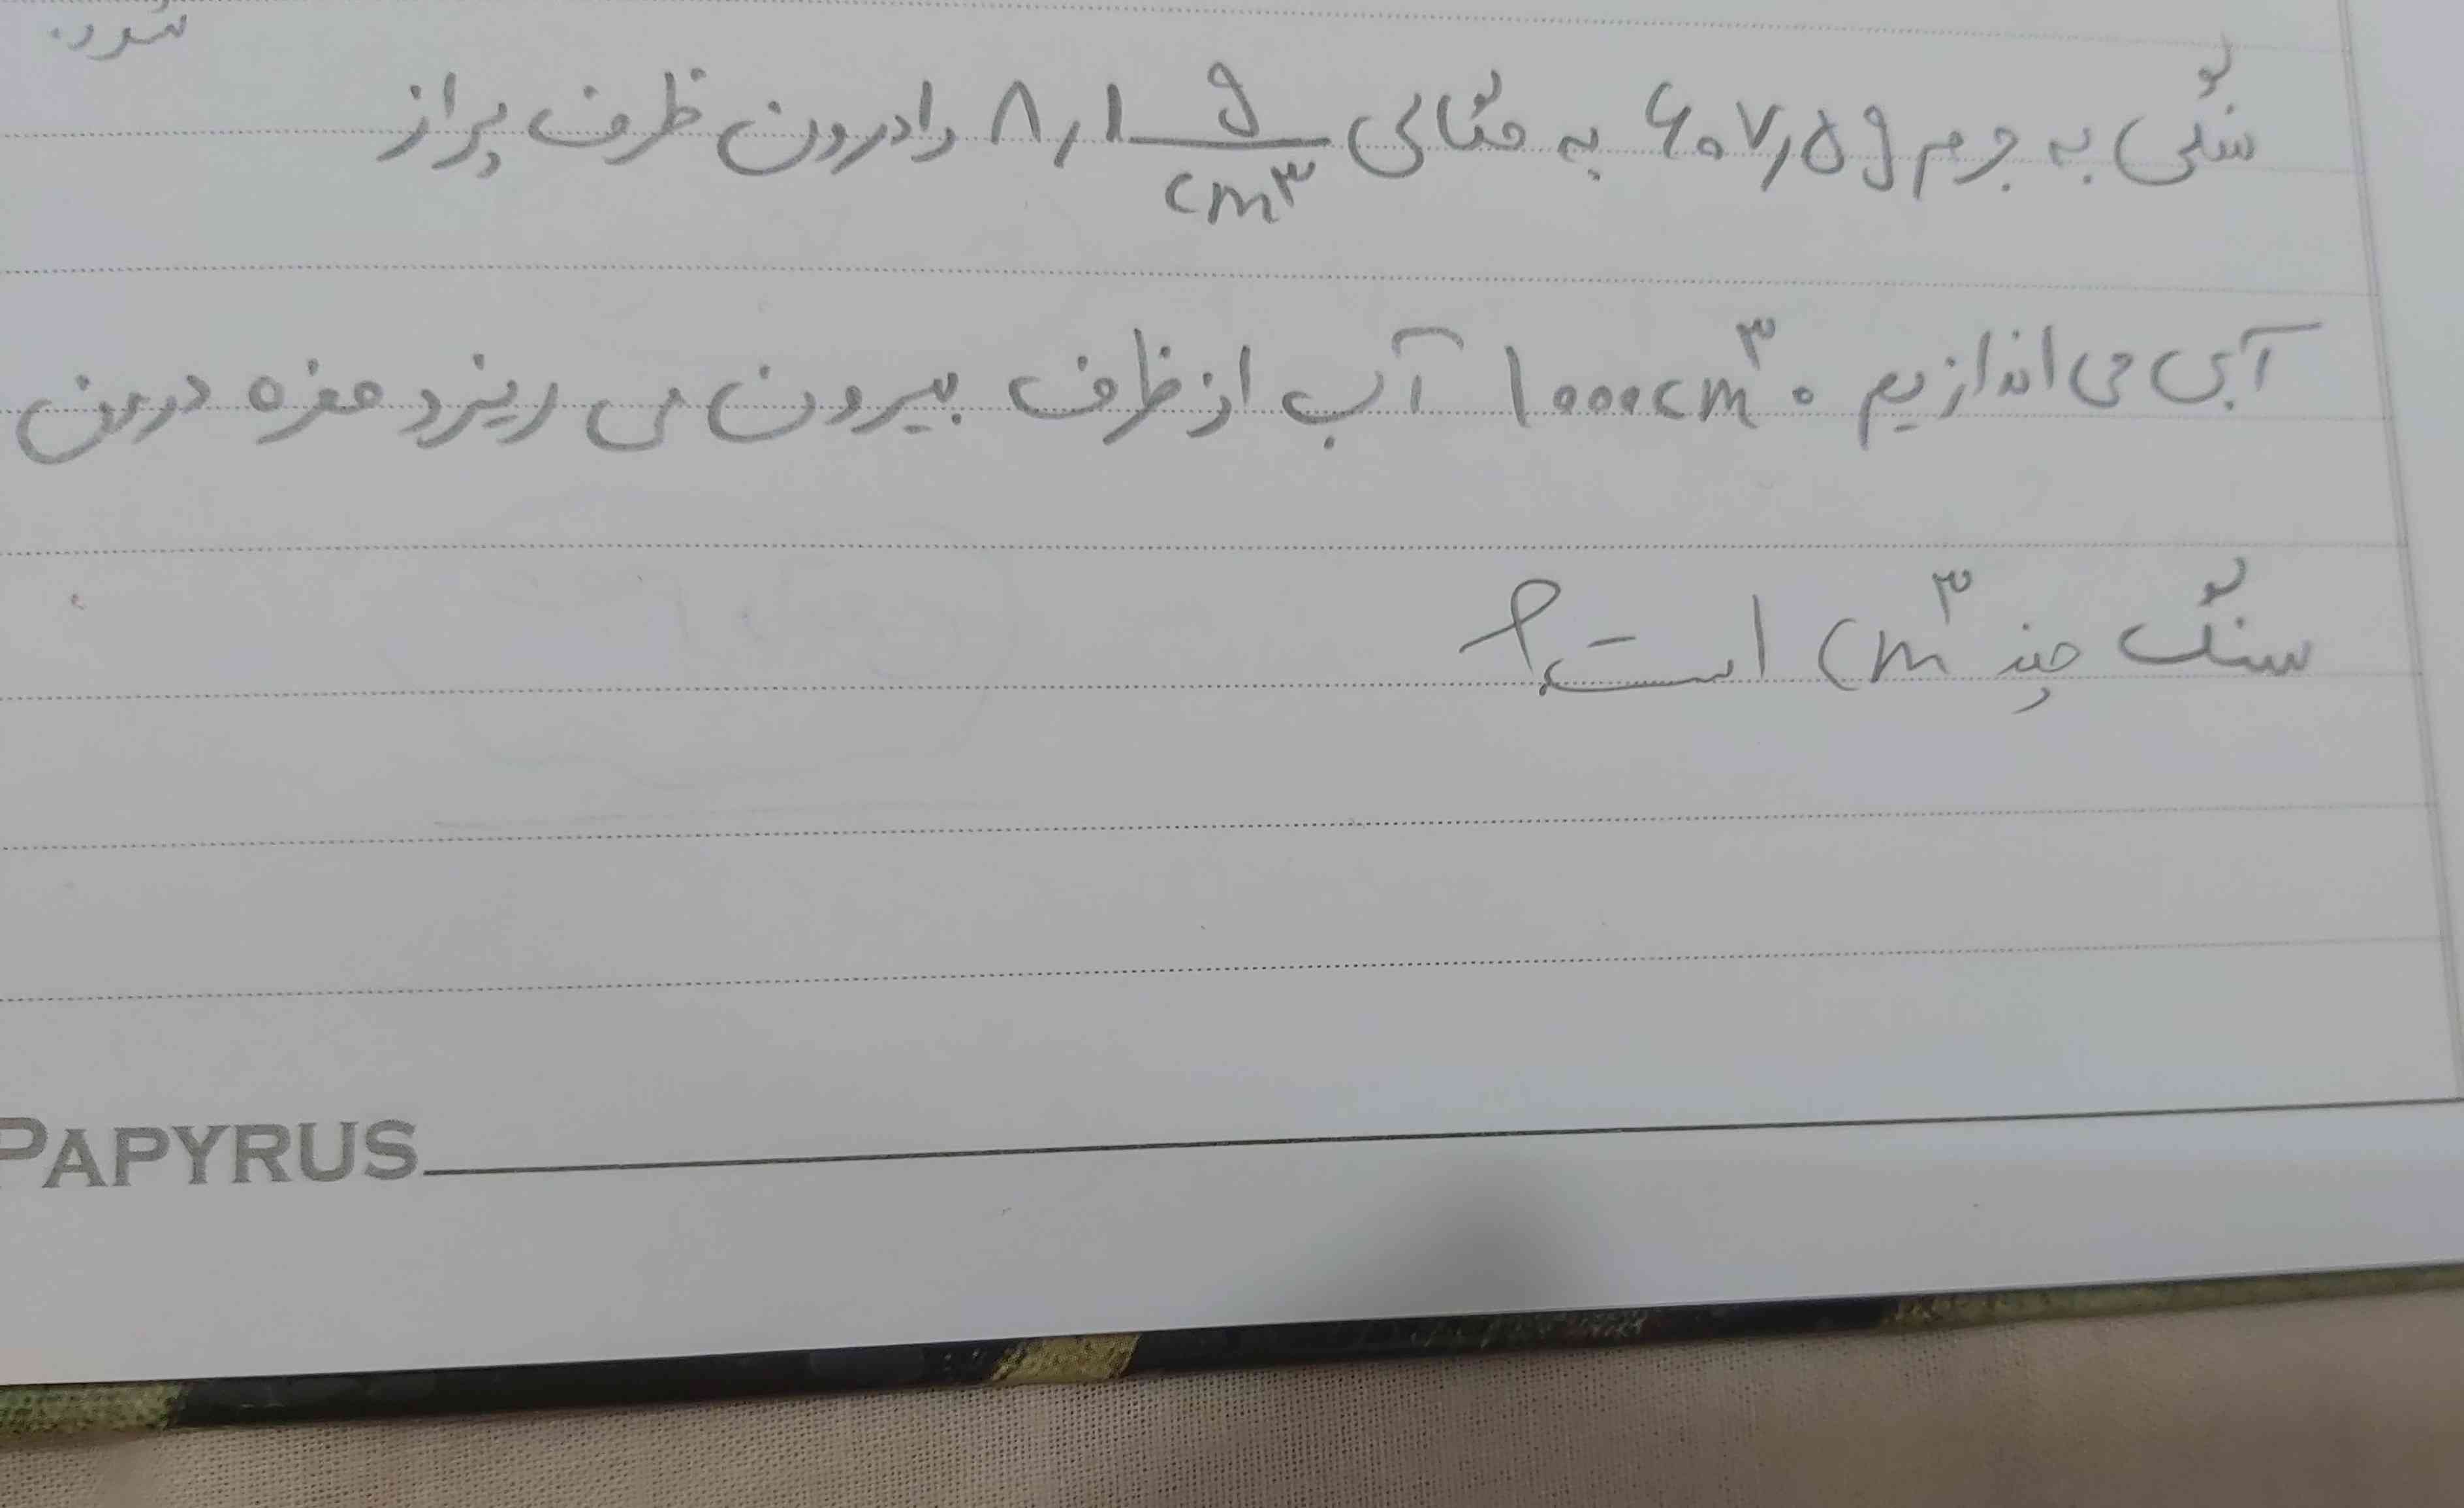 شود.
سنگی به جرم ۶۰۷٫۵g به چگالی ۸٫۱ g/cm۳ را درون ظرف پر از
آبی می اندازیم. ۱۰۰۰cm۳ آب از ظرف بیرون می ریزد حفره درون
سنگ چند cm۳ است؟
PAPYRUS